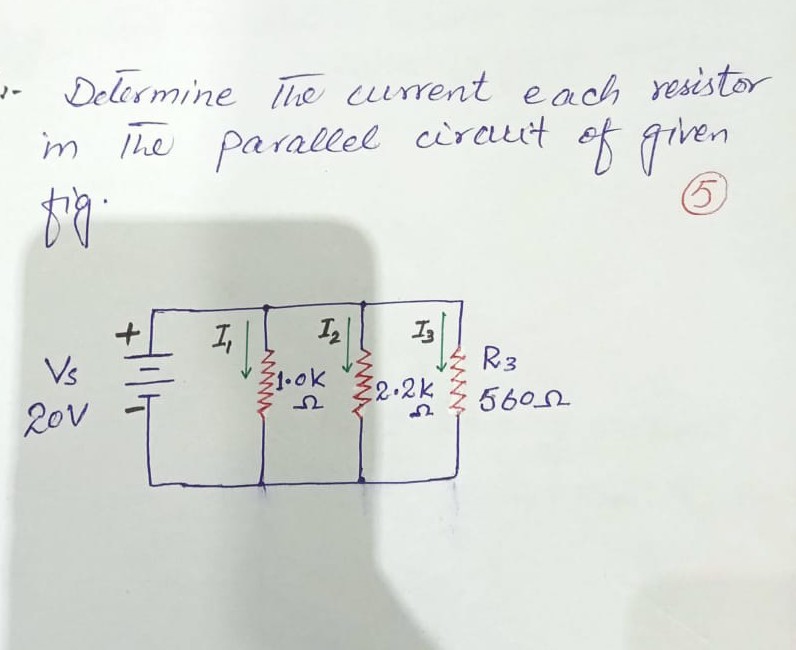 :- Determine The current each resistor
in The parallel circuit of given
fig.
5
+
I1
I2
I3
R3
Vs
1.0K
Ω
2.2K
Ω
560Ω
20V
-